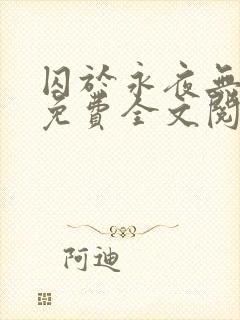 囚於永夜無
免費全文閱
阿迪